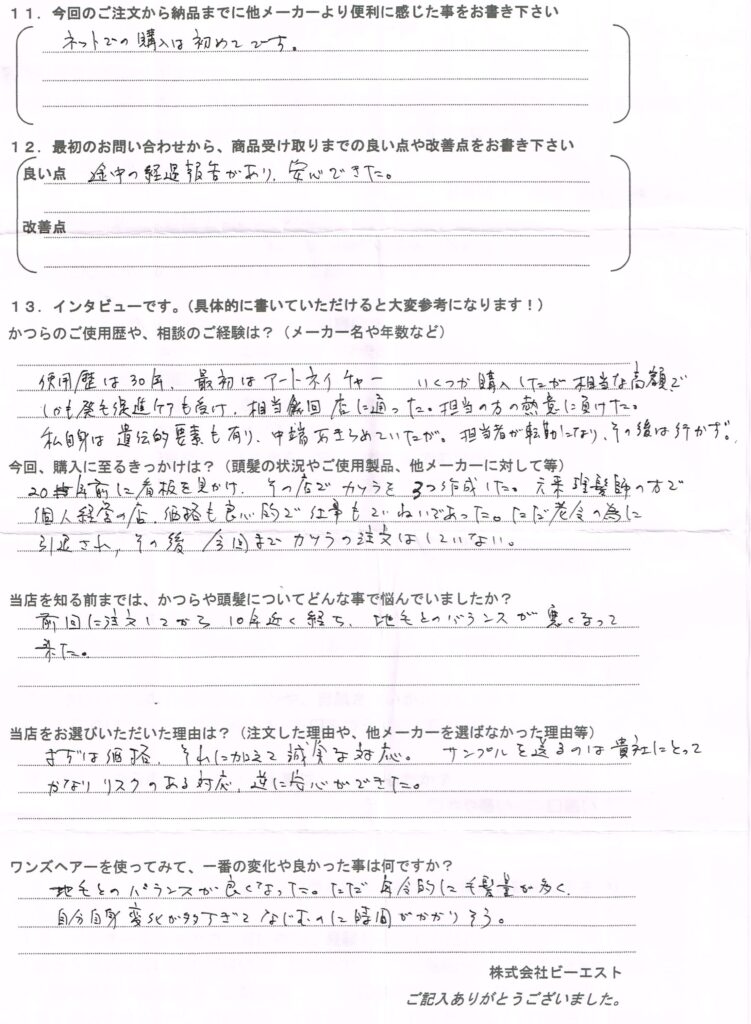 11．今回のご注文から納品までに他メーカーより便利に感じた事をお書き下さい
ネットでの購入は初めてです。
12．最初のお問い合わせから、商品受け取りまでの良い点や改善点をお書き下さい
良い点 途中の経過報告があり、安心できた。
改善点
13．インタビューです。（具体的に書いていただけると大変参考になります！）
かつらのご使用歴や、相談のご経験は？（メーカー名や年数など）
使用歴は30年、最初はアートネイチャー いくつか購入したが相当な高額で
しかも発毛促進ケアも受け、相当数回店に通った。担当の方の熱意に負けた。
私自身は遺伝的要素も有り、中端あきらめていたが。担当者が転勤になり、その後は行かず。
今回、購入に至るきっかけは？（頭髪の状況やご使用製品、他メーカーに対して等）
20年前に看板を見かけ、その店でカツラを3つ作成した。元来理髪師の方で
個人経営の店、価格も良心的で仕事もていねいであった。ただ老令の為に
引退され、その後今回までカツラの注文はしていない。
当店を知る前までは、かつらや頭髪についてどんな事で悩んでいましたか？
前回に注文してから10年近く経ち、地毛とのバランスが悪くなって
来た。
当店をお選びいただいた理由は？（注文した理由や、他メーカーを選ばなかった理由等）
まずは価格、それに加えて誠実な対応。 サンプルを送るのは貴社にとって
かなりリスクのある対応、逆に安心ができた。
ワンズヘアーを使ってみて、一番の変化や良かった事は何ですか？
地毛とのバランスが良くなった。ただ年令的に毛髪量が多く、
自分自身変化が多すぎてなじむのに時間がかかりそう。
株式会社ビーエスト
ご記入ありがとうございました。